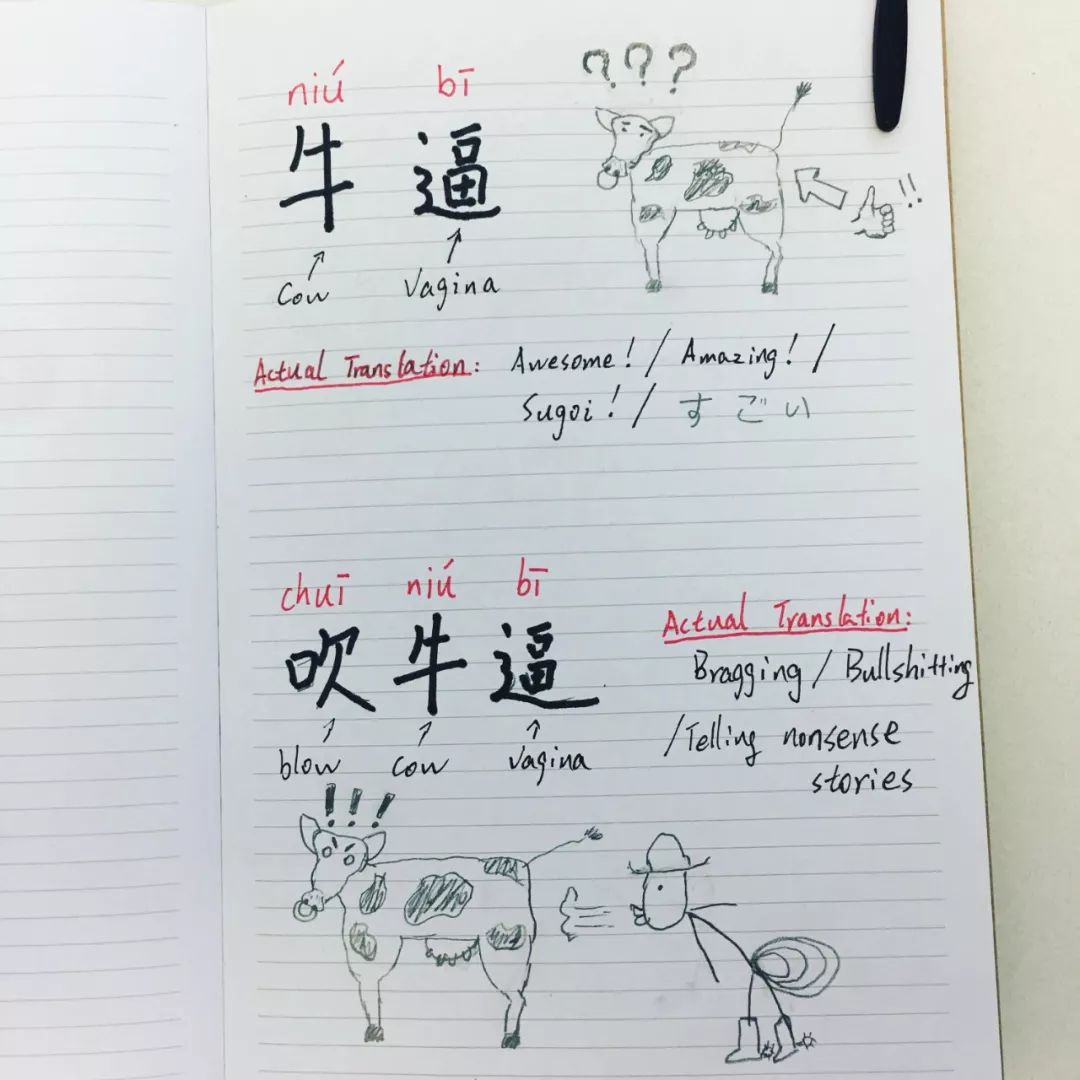 niú bī
???
牛逼
!!
Cow Vagina
Actual Translation: Awesome! / Amazing! /
Sugoi! / すごい
chuī niú bī
吹牛逼
Actual Translation:
Bragging / Bullshitting
/Telling nonsense
stories
blow cow vagina
!!!